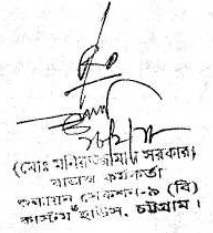 (মোঃ মনিরুজ্জামান সরকার)
রাজস্ব কর্মকর্তা
শুল্কায়ন সেকশন-৯ (বি)
কাস্টম হাউস, চট্টগ্রাম।